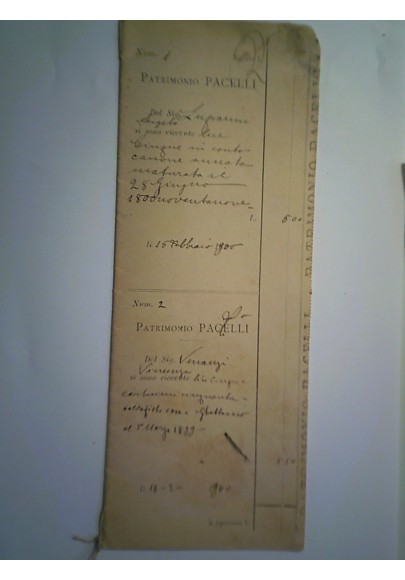 Num. 1
PATRIMONIO PACELLI
Del Sig. Luparini
Angelo
si sono ricevute Lire
Cinque in conto
canone annata
maturata il
28 Giugno
1800novantanove
L. 5.00
li 15 Febbraio 1900
Num. 2
PATRIMONIO PACELLI
Del Sig. Venanzi
Vincenzo
si sono ricevute Lire Cinque
centesimi cinquanta
al 5 Marzo 1899
5.50
li 18-2-900
PATRIMONIO PACELLI